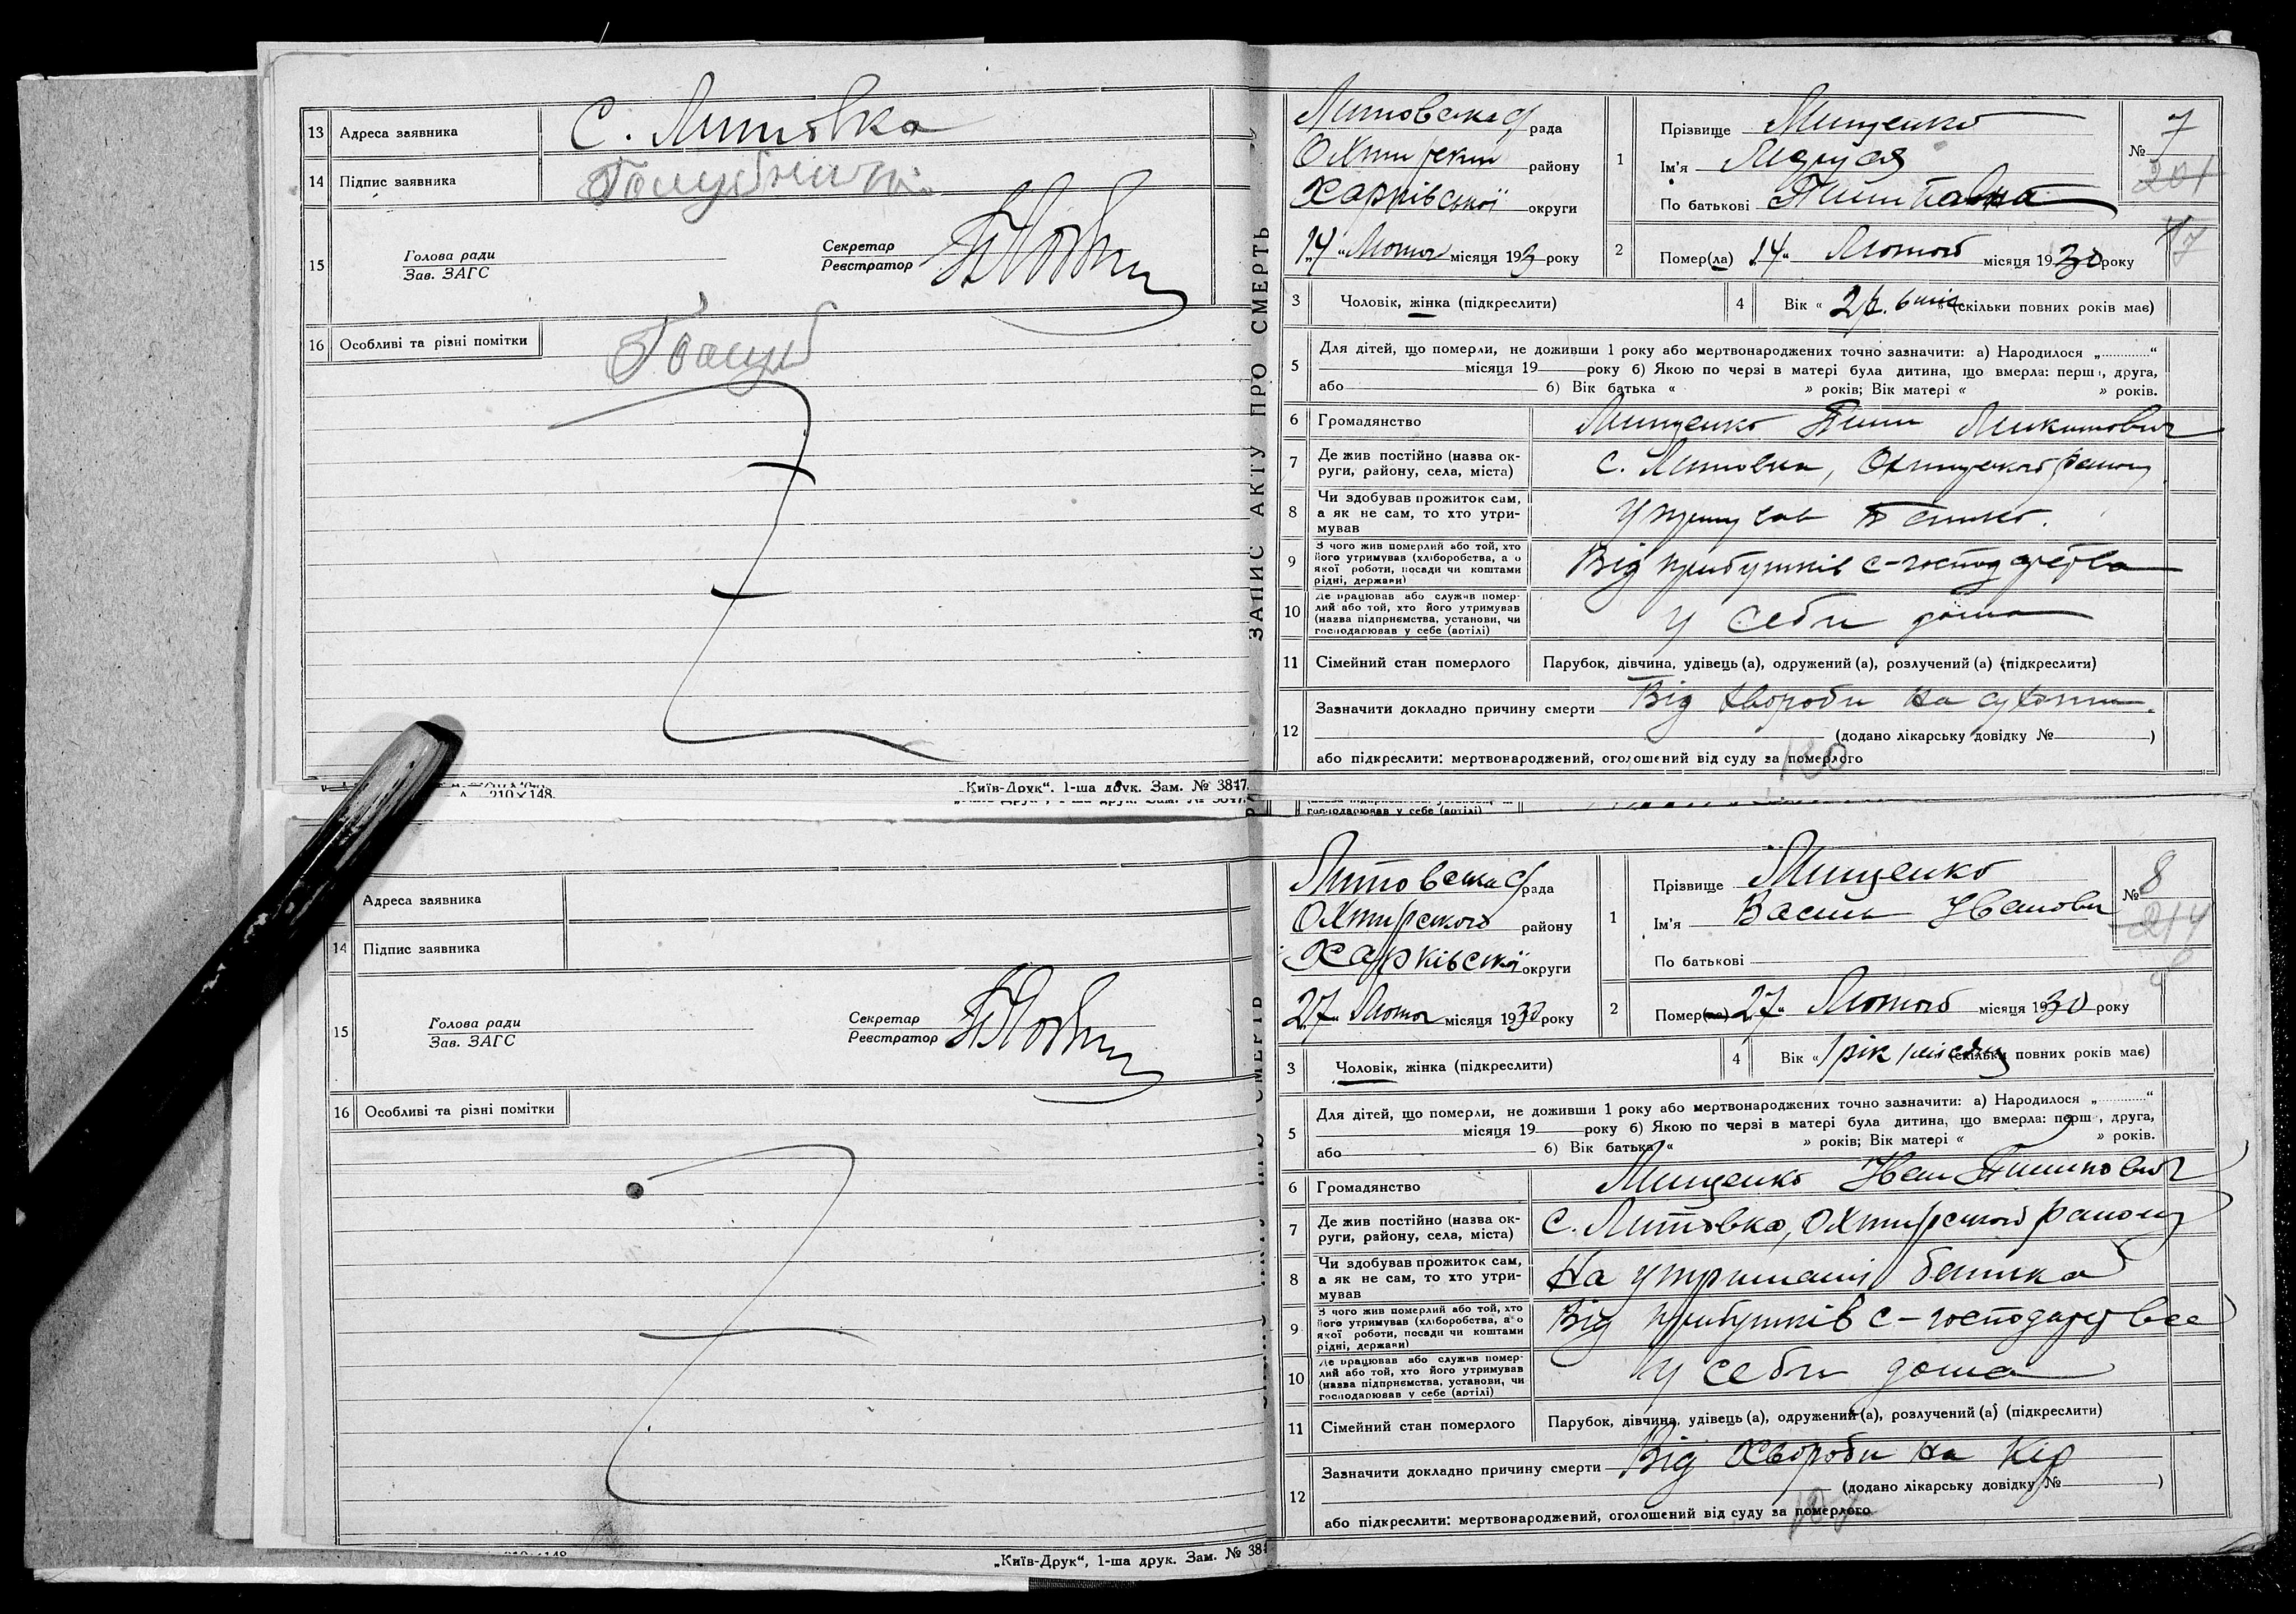 13 Адреса заявника С. Литовка
14 Підпис заявника
15 Голова ради
Зав. ЗАГС
Секретар
Реєстратор
16 Особливі та різні помітки
„Київ-Друк“. 1-ша друк. Зам. № 3847.
210×148.
ЗАПИС АКТУ ПРО СМЕРТЬ
Литовська рада
Охтирський району
Харківської округи
„14“ Лютого місяця 193 року
1 Прізвище Мищенко
Ім'я
По батькові
№ 7
201
2 Помер(ла) „14“ Лютого місяця 1930 року
3 Чоловік, жінка (підкреслити)
4 Вік « 2 р. 6 міс (скільки повних років має)
5 Для дітей, що померли, не доживши 1 року або мертвонароджених точно зазначити: а) Народилося „............“
місяця 19 року б) Якою по черзі в матері була дитина, що вмерла: перша, друга,
або б) Вік батька « » років; Вік матері « » років.
6 Громадянство Мищенко Микитович
7 Де жив постійно (назва ок-
руги, району, села, міста) с. Литовка, Охтирського району
8 Чи здобував прожиток сам,
а як не сам, то хто утри-
мував Утримував батько.
9 З чого жив померлий або той, хто
його утримував (хліборобства, а о
якої роботи, посади чи коштами
рідні, держави) Від прибутків с-господарства
10 Де працював або служив помер-
лий або той, хто його утримував
(назва підприємства, установи, чи
господарював у себе (артілі) У себи дома
11 Сімейний стан померлого Парубок, дівчина, удівець (а), одружений (а), розлучений (а) (підкреслити)
12 Зазначити докладно причину смерти Від хвороби на сухоти.
(додано лікарську довідку № )
або підкреслити: мертвонароджений, оголошений від суду за померлого
Адреса заявника
14 Підпис заявника
15 Голова ради
Зав. ЗАГС
Секретар
Реєстратор
16 Особливі та різні помітки
„Київ-Друк“, 1-ша друк. Зам. № 384
Литовська рада
Охтирського району
Харківської округи
„27“ Лютого місяця 1930 року
1 Прізвище Мищенко
Ім'я Василь Іванович
По батькові
№ 8
214
2 Помер(ла) „27“ Лютого місяця 1930 року
3 Чоловік, жінка (підкреслити)
4 Вік « 1 рік 1 місяць (скільки повних років має)
5 Для дітей, що померли, не доживши 1 року або мертвонароджених точно зазначити: а) Народилося „............“
місяця 19 року б) Якою по черзі в матері була дитина, що вмерла: перша, друга,
або б) Вік батька « » років; Вік матері « » років.
6 Громадянство Мищенко Иван
7 Де жив постійно (назва ок-
руги, району, села, міста) С. Литовка, Охтирського району
8 Чи здобував прожиток сам,
а як не сам, то хто утри-
мував На утриманні батька
9 З чого жив померлий або той, хто
його утримував (хліборобства, а о
якої роботи, посади чи коштами
рідні, держави) Від прибутків с-господарства
10 Де працював або служив помер-
лий або той, хто його утримував
(назва підприємства, установи, чи
господарював у себе (артілі) У себи дома
11 Сімейний стан померлого Парубок, дівчина, удівець (а), одружений (а), розлучений (а) (підкреслити)
12 Зазначити докладно причину смерти Від хвороби на кір
(додано лікарську довідку № )
або підкреслити: мертвонароджений, оголошений від суду за померлого